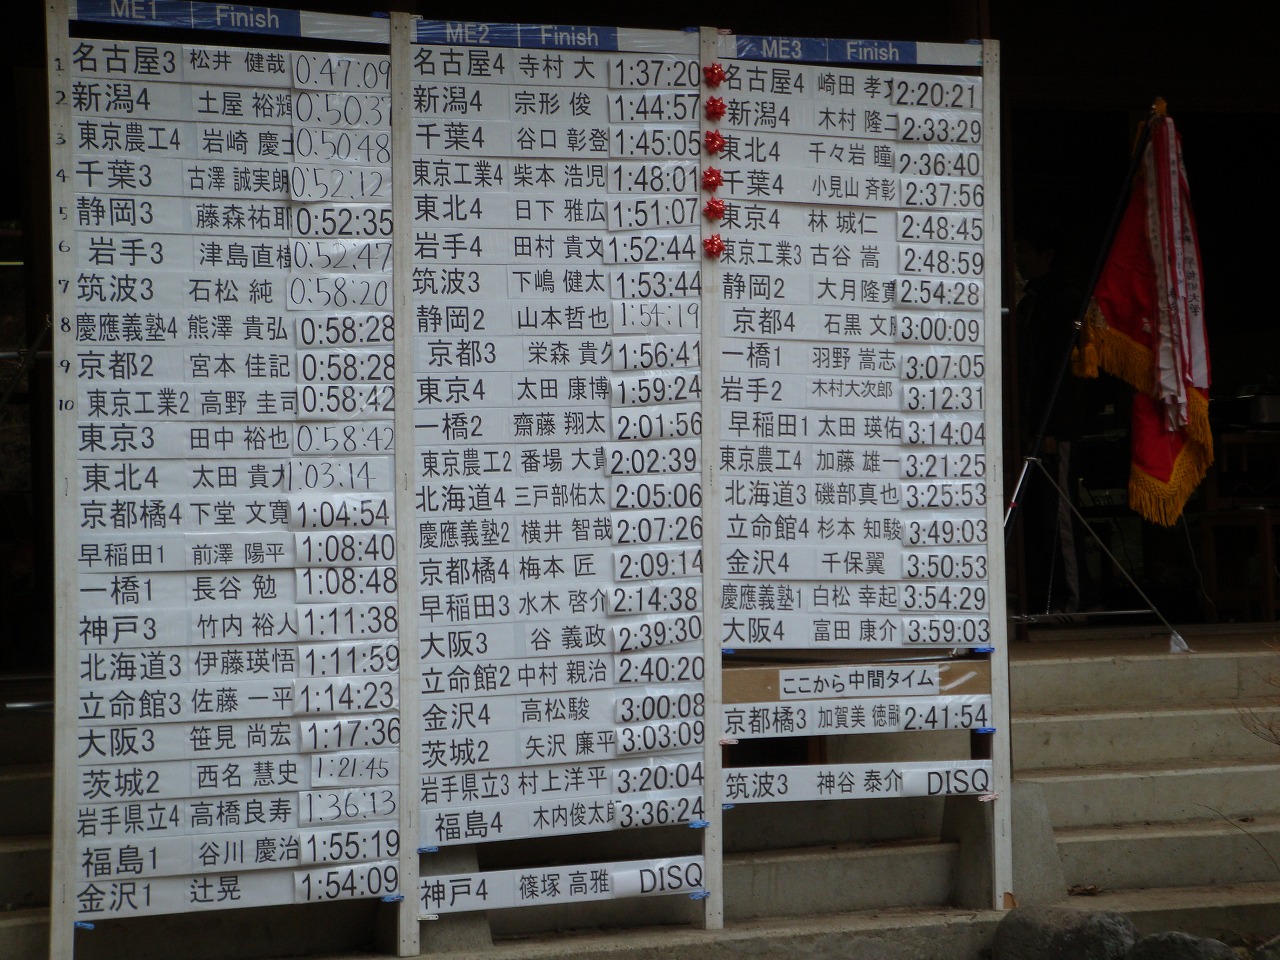 ME1 Finish
1 名古屋3 松井 健哉 0:47:09
2 新潟4 土屋 裕輝 0:50:37
3 東京農工4 岩崎 慶士 0:50:48
4 千葉3 古澤 誠実朗 0:52:12
5 静岡3 藤森祐耶 0:52:35
6 岩手3 津島直樹 0:52:47
7 筑波3 石松 純 0:58:20
8 慶應義塾4 熊澤 貴弘 0:58:28
9 京都2 宮本 佳記 0:58:28
10 東京工業2 高野 圭司 0:58:42
東京3 田中 裕也 0:58:42
東北4 太田 貴大 1:03:14
京都橘4 下堂 文寛 1:04:54
早稲田1 前澤 陽平 1:08:40
一橋1 長谷 勉 1:08:48
神戸3 竹内 裕人 1:11:38
北海道3 伊藤瑛悟 1:11:59
立命館3 佐藤 一平 1:14:23
大阪3 笹見 尚宏 1:17:36
茨城2 西名 慧史 1:21:45
岩手県立4 高橋良寿 1:36:13
福島1 谷川 慶治 1:55:19
金沢1 辻晃 1:54:09
ME2 Finish
名古屋4 寺村 大 1:37:20
新潟4 宗形 俊 1:44:57
千葉4 谷口 彰登 1:45:05
東京工業4 柴本 浩児 1:48:01
東北4 日下 雅広 1:51:07
岩手4 田村 貴文 1:52:44
筑波3 下嶋 健太 1:53:44
静岡2 山本哲也 1:54:19
京都3 栄森 貴久 1:56:41
東京4 太田 康博 1:59:24
一橋2 齋藤 翔太 2:01:56
東京農工2 番場 大貴 2:02:39
北海道4 三戸部佑太 2:05:06
慶應義塾2 横井 智哉 2:07:26
京都橘4 梅本 匠 2:09:14
早稲田3 水木 啓介 2:14:38
大阪3 谷 義政 2:39:30
立命館2 中村 親治 2:40:20
金沢4 高松駿 3:00:08
茨城2 矢沢 廉平 3:03:09
岩手県立3 村上洋平 3:20:04
福島4 木内俊太郎 3:36:24
神戸4 篠塚 高雅 DISQ
ME3 Finish
名古屋4 崎田 孝文 2:20:21
新潟4 木村 隆二 2:33:29
東北4 千々岩 瞳 2:36:40
千葉4 小見山 斉彰 2:37:56
東京4 林 城仁 2:48:45
東京工業3 古谷 嵩 2:48:59
静岡2 大月隆寛 2:54:28
京都4 石黒 文 3:00:09
一橋1 羽野 嵩志 3:07:05
岩手2 木村大次郎 3:12:31
早稲田1 太田 瑛佑 3:14:04
東京農工4 加藤 雄一 3:21:25
北海道3 磯部真也 3:25:53
立命館4 杉本 知駿 3:49:03
金沢4 千保翼 3:50:53
慶應義塾1 白松 幸起 3:54:29
大阪4 富田 康介 3:59:03
ここから中間タイム
京都橘3 加賀美 徳嗣 2:41:54
筑波3 神谷 泰介 DISQ